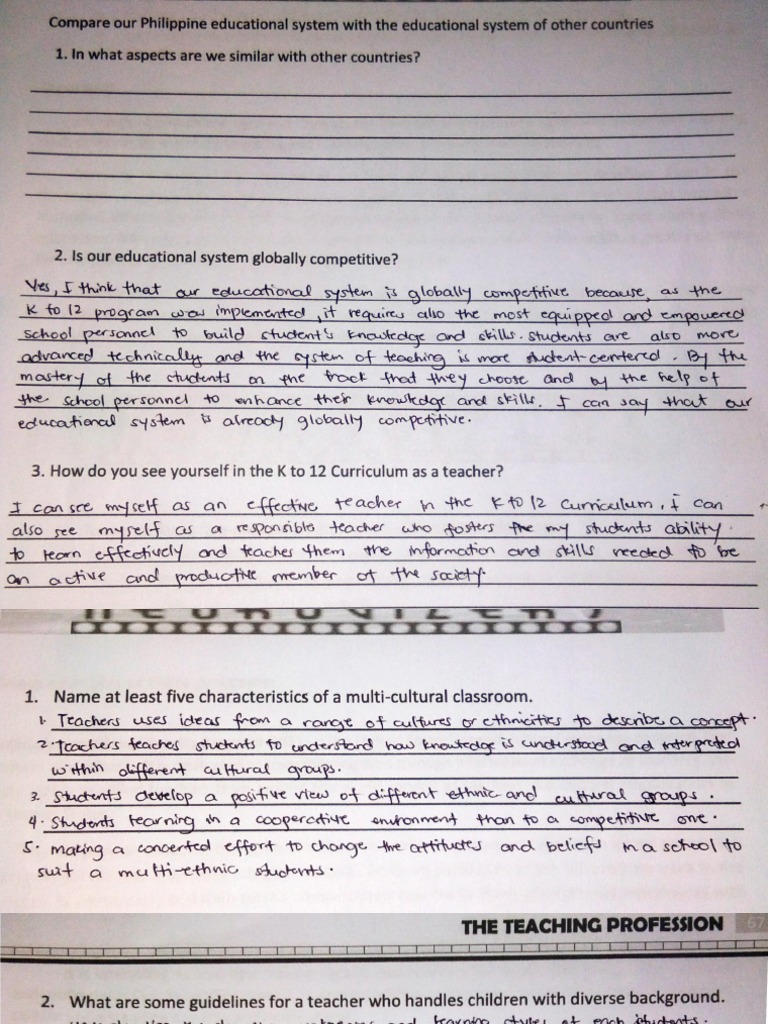 Compare our Philippine educational system with the educational system of other countries
1. In what aspects are we similar with other countries?
2. Is our educational system globally competitive?
Yes, I think that our educational system is globally competitive because, as the
K to 12 program was implemented, it requires also the most equipped and empowered
school personnel to build student's knowledge and skills. students are also more
advanced technically and the system of teaching is more student-centered. By the
mastery of the students on the track that they choose and by the help of
the school personnel to enhance their knowledge and skills. I can say that our
educational system is already globally competitive.
3. How do you see yourself in the K to 12 Curriculum as a teacher?
I can see myself as an effective teacher in the K to 12 Curriculum, I can
also see myself as a responsible teacher who fosters the my students ability
to learn effectively and teaches them the information and skills needed to be
an active and productive member of the society.
1. Name at least five characteristics of a multi-cultural classroom.
1. Teachers uses ideas from a range of cultures or ethnicities to describe a concept.
2. Teachers teaches students to understand how knowledge is understood and interpreted
within different cultural groups.
3. Students develop a positive view of different ethnic and cultural groups.
4. Students learning in a cooperative environment than to a competitive one.
5. making a concerted effort to change the attitudes and beliefs in a school to
suit a multi-ethnic students.
THE TEACHING PROFESSION 67
2. What are some guidelines for a teacher who handles children with diverse background.
and learning styles of each students.